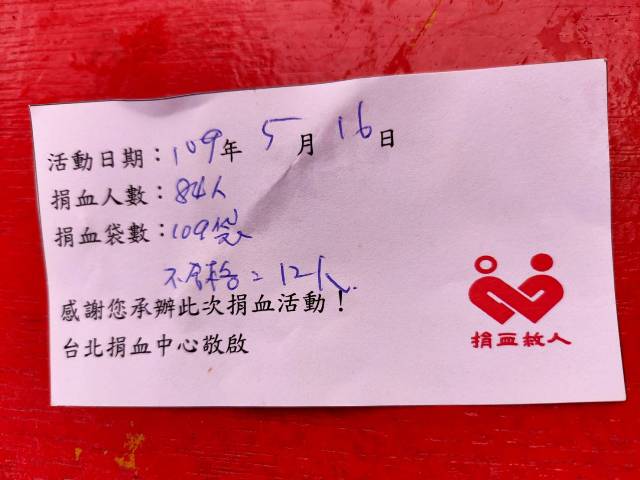 活動日期：109年 5月 16日
捐血人數：84人
捐血袋數：109袋
不合格：12人
感謝您承辦此次捐血活動！
台北捐血中心敬啟
捐血救人